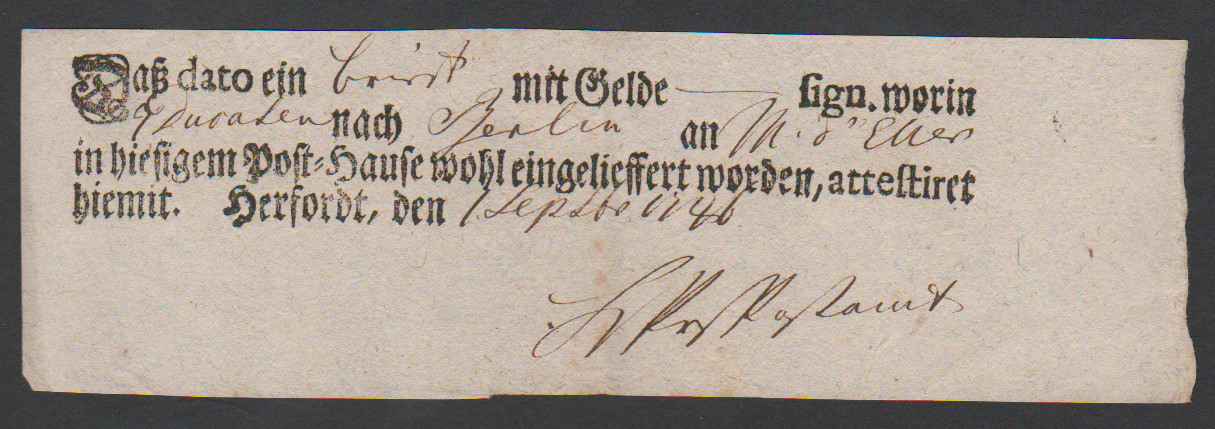 Daß dato ein brieff mit Gelde — sign. worin
ducaten nach Berlin an M. d'Eller
in hiesigem Post-Hause wohl eingelieffert worden, attestiret
hiemit. Herfordt, den 1 Septbr 1746
Postamt